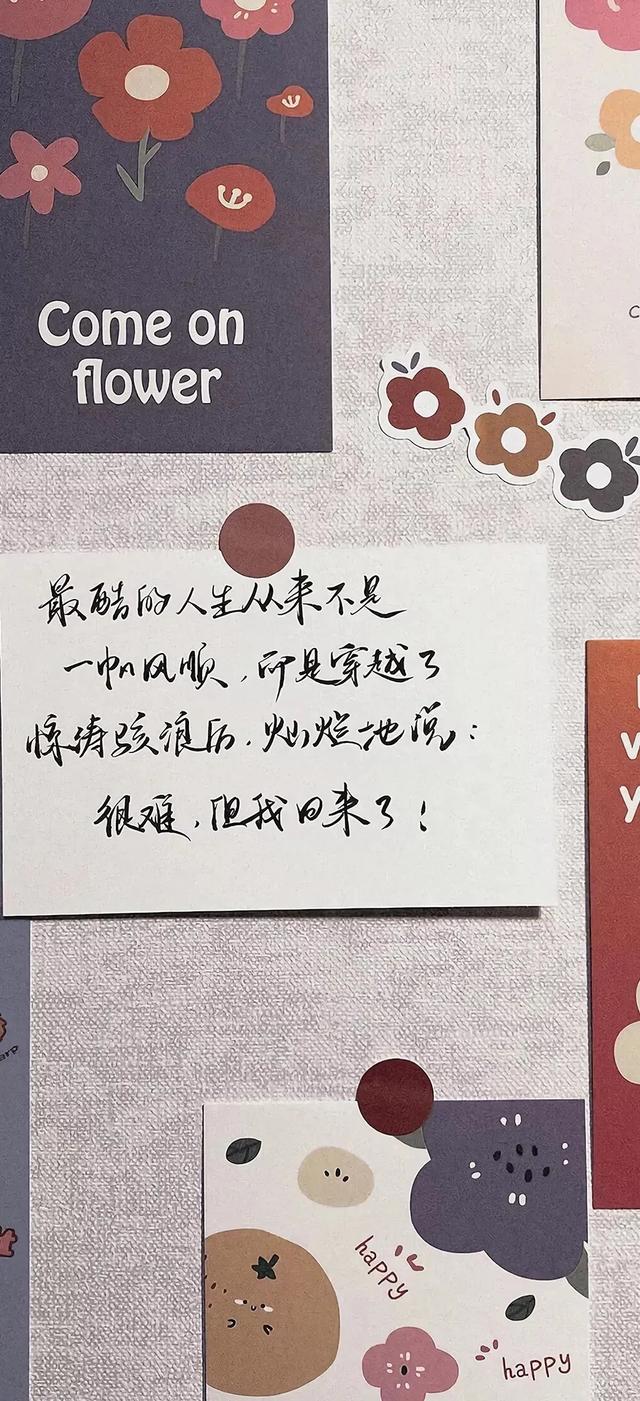 Come on
flower
最酷的人生从来不是
一帆风顺，而是穿越了
惊涛骇浪后，灿烂地说：
很难，但我回来了！
happy
happy